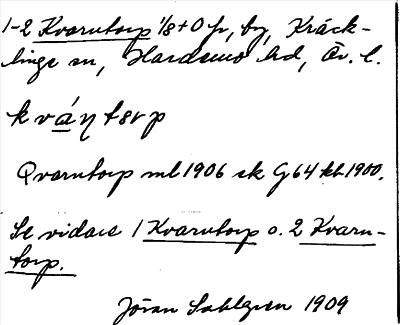 1-2 Kvarntorp 1/8+0 fr, by, Kräck-
linge sn, Hardemo hd, Ör. l.
kvá̱ηtɐrp
Qvarntorp ml 1906 sk G64 kb 1900.
Se vidare 1 Kvarntorp o. 2 Kvarn-
torp.
Jöran Sahlgren 1909